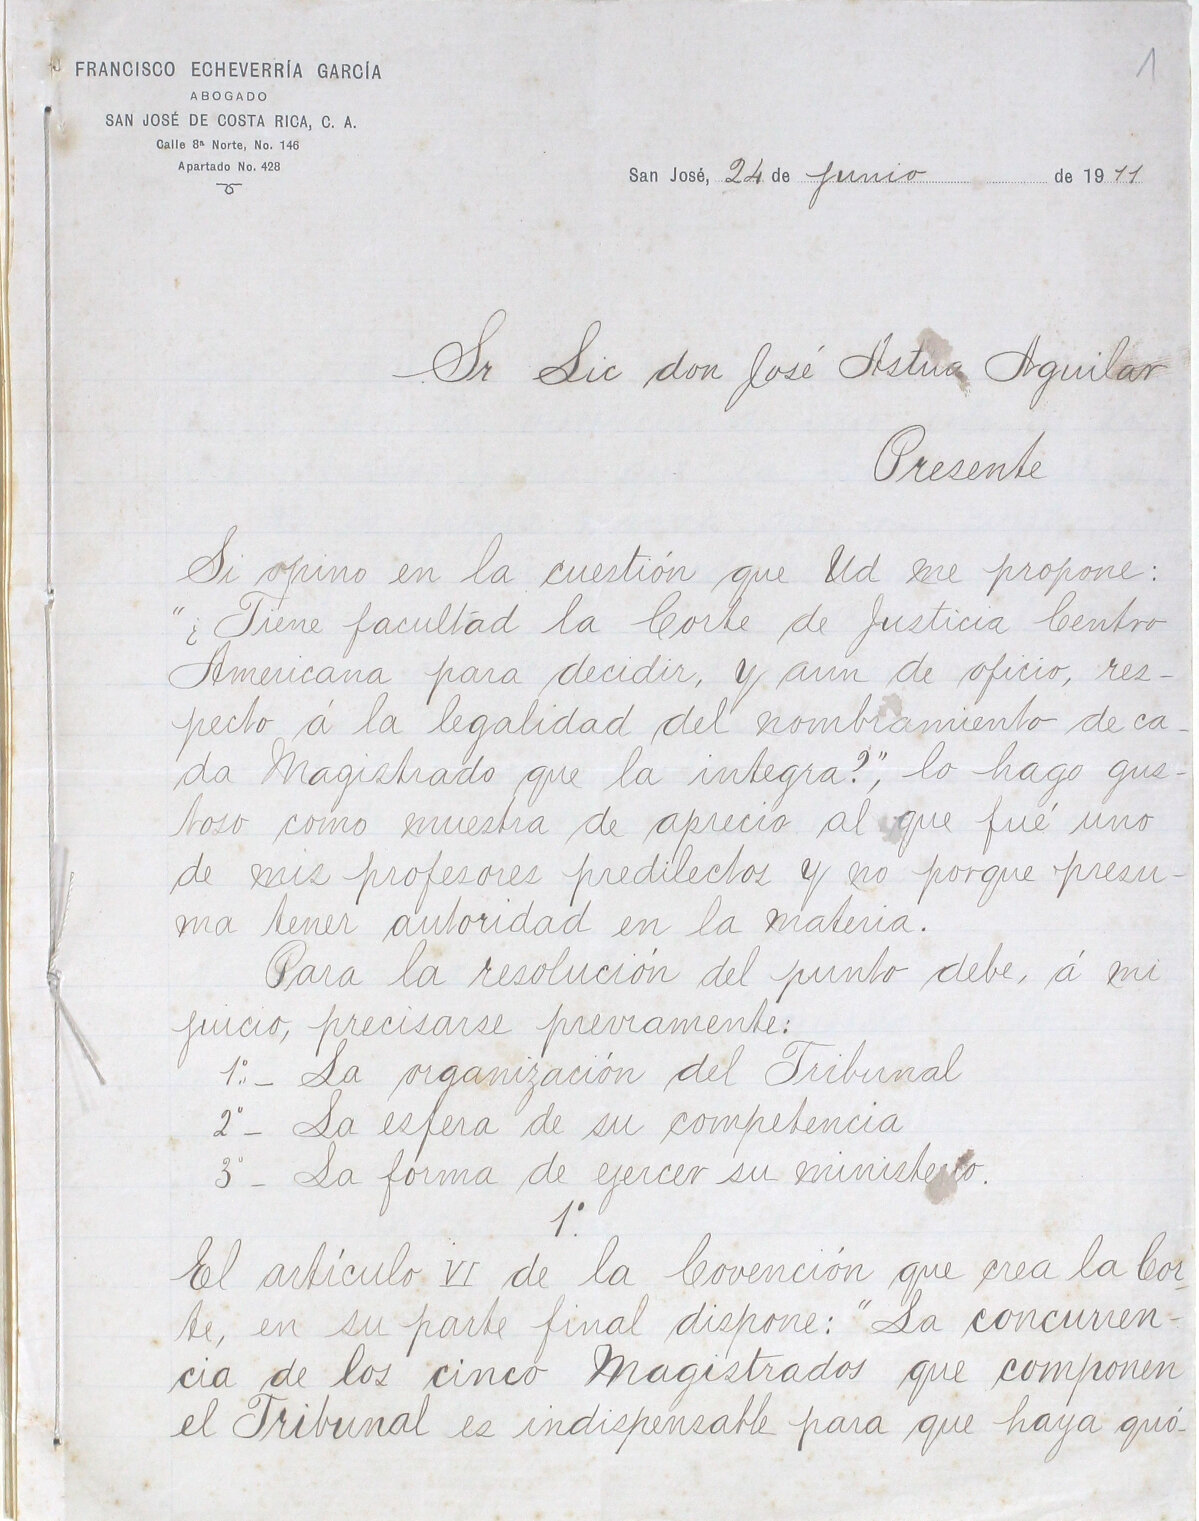 1
FRANCISCO ECHEVERRÍA GARCÍA
ABOGADO
SAN JOSÉ DE COSTA RICA, C. A.
Calle 8ª Norte, No. 146
Apartado No. 428
San José, 24 de junio de 1911
Sr Lic don José Astua Aguilar
Presente
Si opino en la cuestión que Ud me propone:
"¿Tiene facultad la Corte de Justicia Centro
Americana para decidir, y aun de oficio, res-
pecto á la legalidad del nombramiento de ca-
da Magistrado que la integra?", lo hago gus-
toso como muestra de aprecio al que fué uno
de mis profesores predilectos y no porque presu-
ma tener autoridad en la materia.
Para la resolución del punto debe, á mi
juicio, precisarse previamente:
1º.- La organización del Tribunal
2º- La esfera de su competencia
3º- La forma de ejercer su ministerio.
1º
El artículo VI de la Covención que crea la Cor-
te, en su parte final dispone: "La concurren-
cia de los cinco Magistrados que componen
el Tribunal es indispensable para que haya quó-